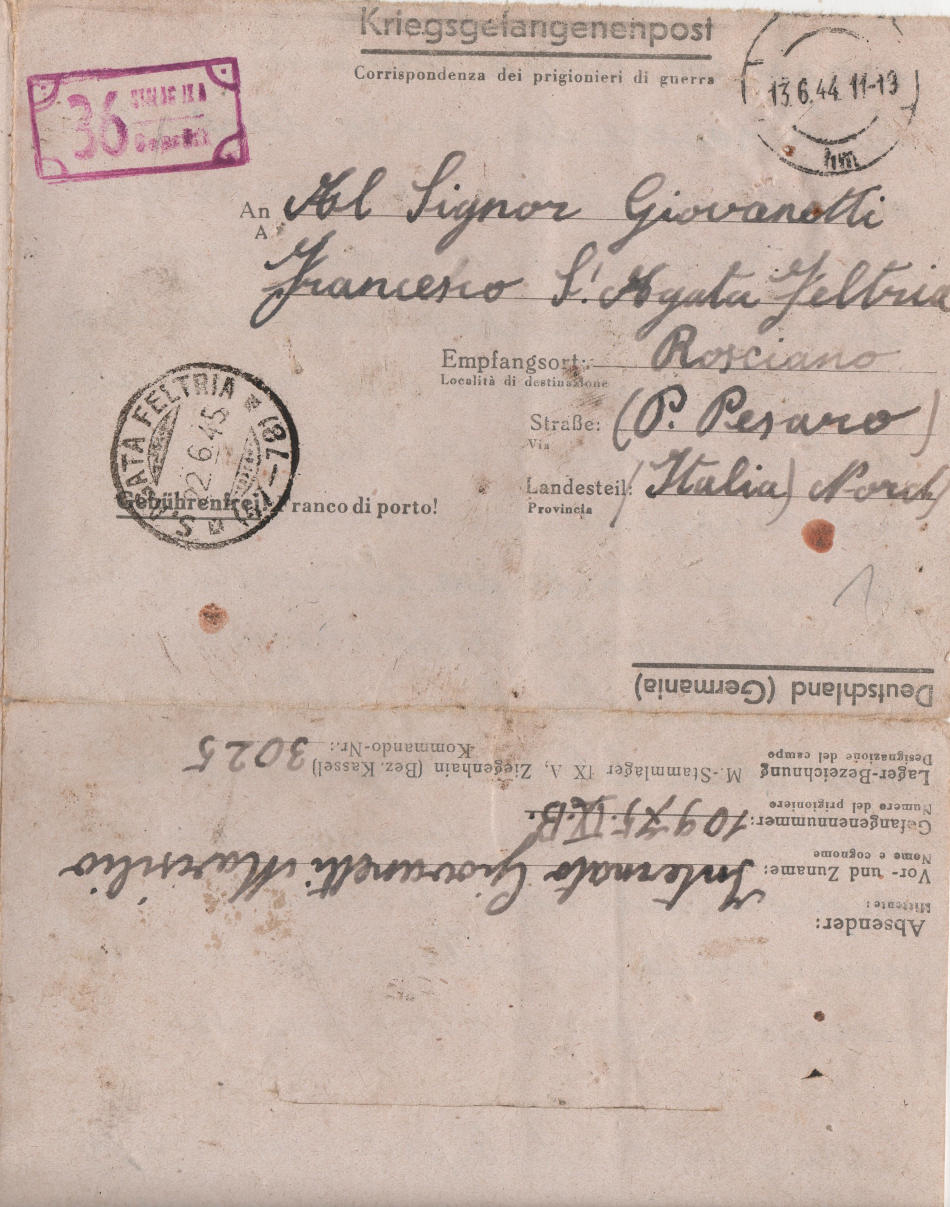 Kriegsgefangenenpost
Corrispondenza dei prigionieri di guerra
13.6.44. 11-19
hm
36 STALAG IX A
Geprüft
An Al Signor Giovanetti
A
Francesco S. Agata Feltria
Empfangsort: Rosciano
Località di destinazione
Straße: (P. Pesaro)
Via
Landesteil: (Italia) Nord)
Provincia
S. AGATA FELTRIA
22.6.45
Gebührenfrei! Franco di porto!
Deutschland (Germania)
Absender:
Mittente:
Vor- und Zuname: Internato Giovanetti Marsilio
Nome e cognome
Gefangenennummer: 10975.IX.B.
Numero del prigioniero
Lager-Bezeichnung M.-Stammlager IX A, Ziegenhain (Bez. Kassel)
Designazione del campo
Kommando-Nr.: 3025